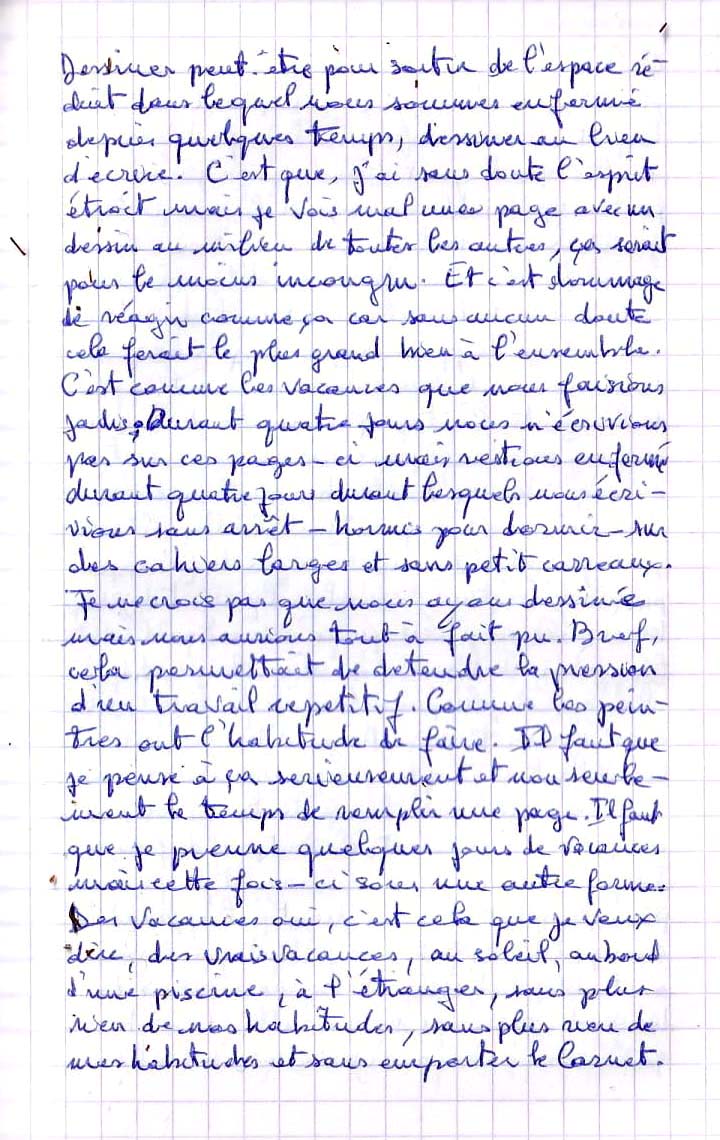 Dessiner peut-être pour sortir de l'espace ré-
duit dans lequel nous sommes enfermé
depuis quelques temps, dessiner au lieu
d'écrire. C'est que, j'ai sans doute l'esprit
étroit mais je vois mal une page avec un
dessin au milieu de toutes les autres, ça serait
pour le moins incongru. Et c'est dommage
de réagir comme ça car sans aucun doute
cela ferait le plus grand bien à l'ensemble.
C'est comme les vacances que nous faisions
jadis, Durant quatre jours nous n'écrivions
pas sur ces pages-ci mais restions enfermé
durant quatre jours durant lesquels nous écri-
vions sans arrêt - hormis pour dormir - sur
des cahiers larges et sans petit carreaux.
Je ne crois pas que nous ayons dessiné
mais nous aurions tout à fait pu. Bref,
cela permettait de detendre la pression
d'un travail repetitif. Comme les pein-
tres ont l'habitude de faire. Il faut que
je pense à ça serieusement et non seule-
ment le temps de remplir une page. Il faut
que je prenne quelques jours de vacances
mais cette fois-ci sous une autre forme.
Des vacances oui, c'est cela que je veux
dire, des vrais vacances, au soleil, au bord
d'une piscine, à l'étranger, sans plus
rien de nos habitudes, sans plus rien de
mes habitudes et sans emporter le Carnet.